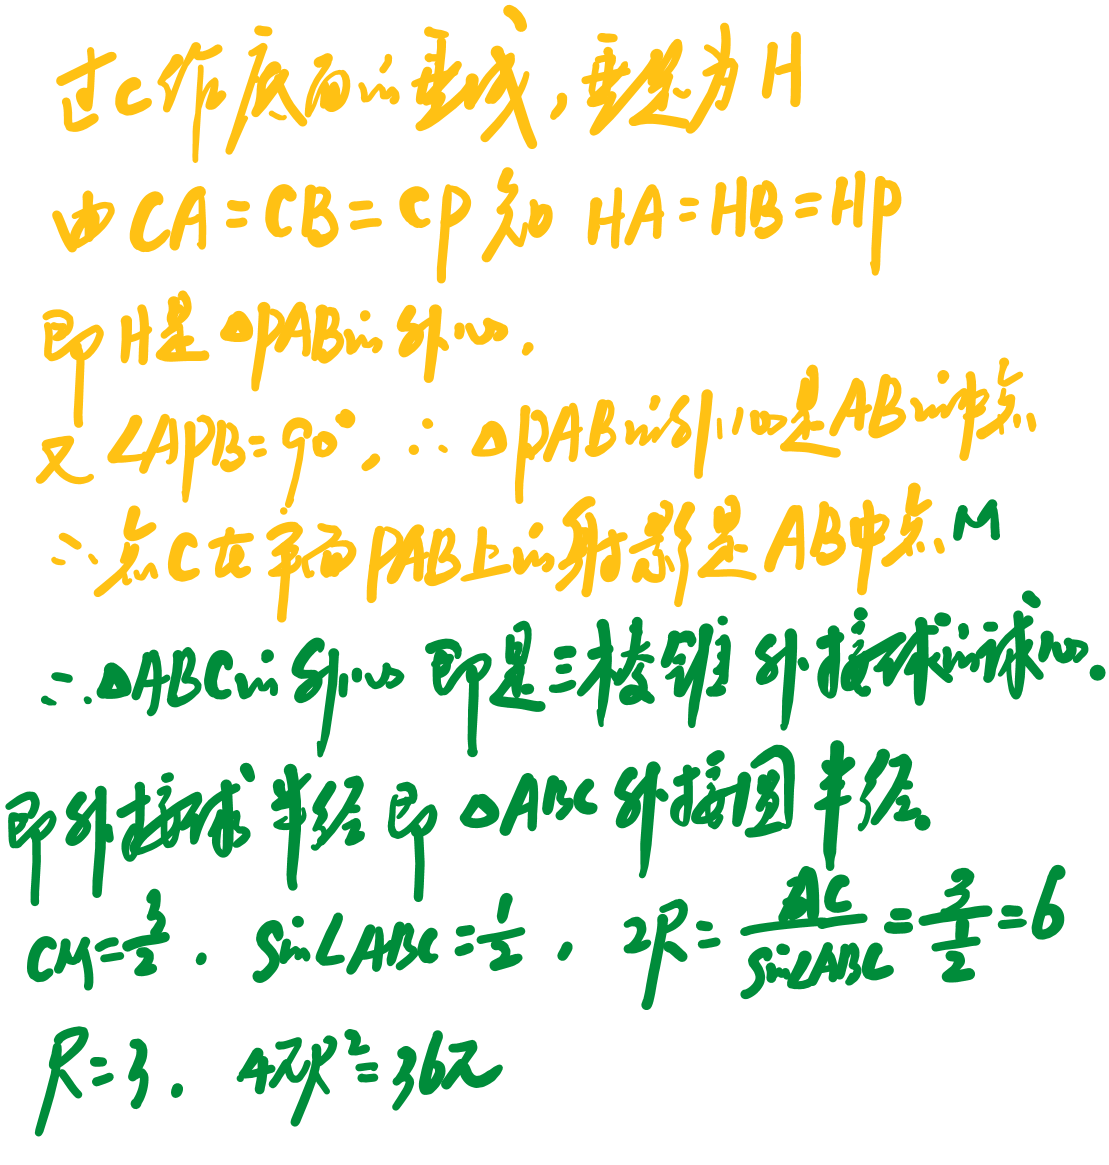 过C作底面的垂线,垂足为H
由CA=CB=CP知 HA=HB=HP
即H是△PAB的外心.
又∠APB=90°,∴△PAB的外心是AB的中点
∴点C在平面PAB上的射影是AB中点M
∴△ABC的外心即是三棱锥外接球的球心.
即外接球半径即△ABC外接圆半径.
CM=3/2. sin∠ABC=1/2, 2R=AC/sin∠ABC=3/(1/2)=6
R=3. 4πR²=36π